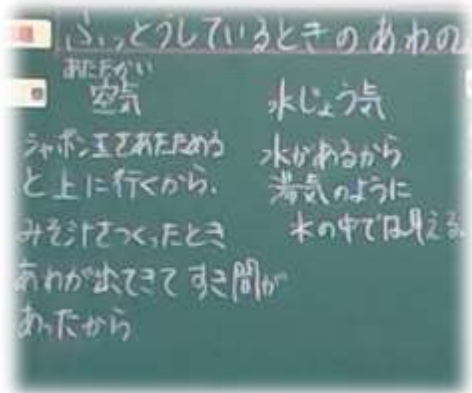 ふっとうしているときのあわの
あたたかい
空気
シャボン玉をあたためる
と上に行くから.
みそ汁をつくったとき
あわが出てきてすき間が
あったから
水じょう気
水があるから
湯気のように
水の中では見える